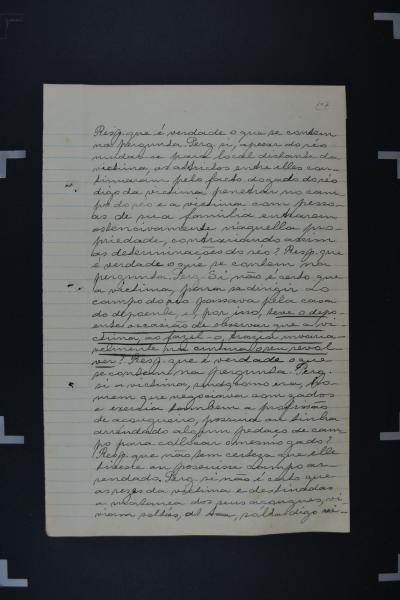 Resp. que é verdade o que se contem
na pergunta. Perg. si, apezar do réo
mudar-se para local distante da
victima, os attrictos entre elles con-
tinuaram pelo facto do gado do réo,
digo da victima, penetrar no cam-
po do réo e a victima com pesso-
as de sua familia entrarem
ostensivamente naquella pro-
priedade, contrariando assim
as determinações do réo? Resp. que
é verdade o que se contem na
pergunta. Perg. Si não é certo que
a victima, para se dirigir ao
campo do réo passava pela casa
do depoente, e, por isso, teve o depo-
ente occasião de observar que a vi-
ctima, ao fazel-o, trazia invaria-
velmente na cintura o seu revol-
ver? Resp. que é verdade o que
se contem na pergunta. Perg.
si a victima, sendo como era, ho-
mem que negociava com gados
e exercia tambem a profissão
de açougueiro, possuia ou tinha
arrendado algum pedaço de cam-
po para collocar o mesmo gado?
Resp. que não tem certeza que elle
tivesse ou possuisse campo ar-
rendado. Perg. si não é certo que
as rezes da victima e destinadas
a matança dos seus açougues, vi-
viam soltas, digo vi-